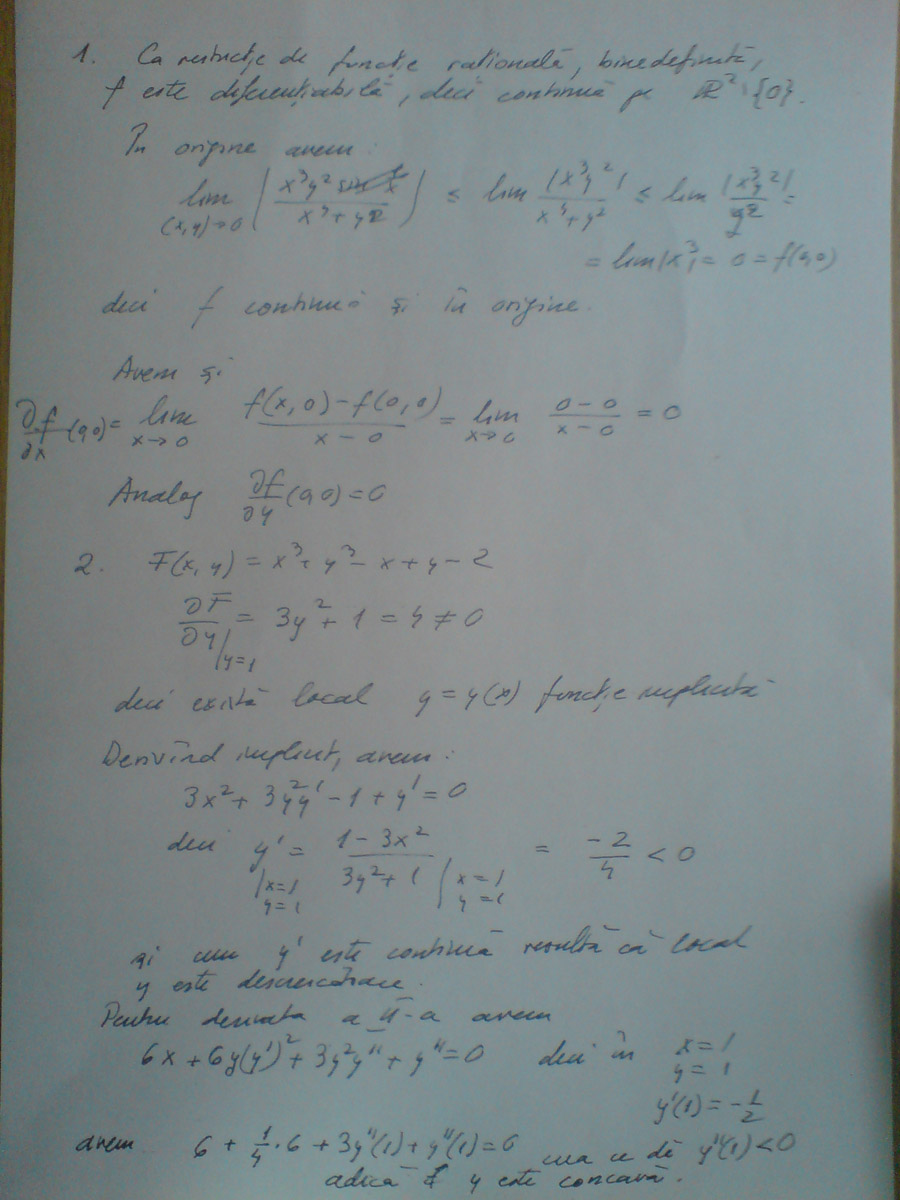 1. Ca restricție de funcție rațională, bine definită,
f este diferențiabilă, deci continuă pe ℝ² \ {0}.
În origine avem:
lim (x,y)→0 | x³y² / x⁴+y² | ≤ lim |x³y²| / x⁴+y² ≤ lim |x³y²| / y² =
= lim |x³| = 0 = f(0,0)
deci f continuă și în origine.
Avem și
∂f/∂x (0,0) = lim x→0 f(x,0) - f(0,0) / x - 0 = lim x→0 0 - 0 / x - 0 = 0
Analog ∂f/∂y (0,0) = 0
2. F(x,y) = x³ + y³ - x + y - 2
∂F/∂y |y=1 = 3y² + 1 = 4 ≠ 0
deci există local y = y(x) funcție implicită
Derivînd implicit, avem:
3x² + 3y²y' - 1 + y' = 0
deci y' |x=1 y=1 = 1 - 3x² / 3y² + 1 |x=1 y=1 = -2/4 < 0
și cum y' este continuă rezultă că local
y este descrescătoare.
Pentru derivata a II-a avem
6x + 6y(y')² + 3y²y'' + y'' = 0 deci în x = 1
y = 1
y'(1) = -1/2
avem 6 + 1/4 · 6 + 3y''(1) + y''(1) = 0 ceea ce dă y''(1) < 0
adică y este concavă.